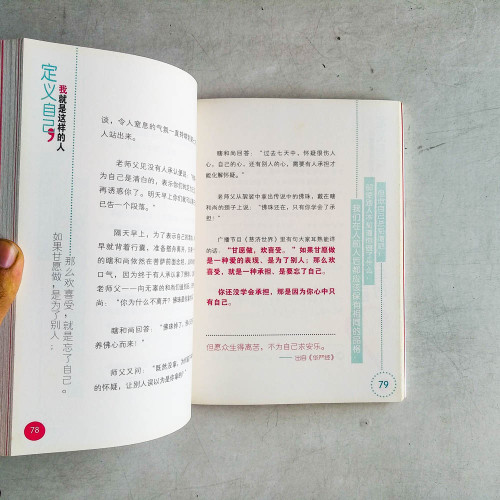 定义自己，
我就是这样的人
那么欢喜受，就是忘了自己。
如果甘愿做，是为了别人；
谈，令人窒息的气氛一直持续
人站出来。
老师父见没有人承认
为自己是清白的，表示你们
再诱惑你了。明天早上你们
已告一个段落。"
隔天早上，为了表示自己的
早就背着行囊，准备想方离开，
的瞎和尚依然在菩萨前
口气，因为终于有人承认拿了
老师父——向无辜的和尚们
尚："你为什么不离开？佛珠是
瞎和尚回答："佛珠掉了，
养佛心而来！"
师父又问："既然没拿，为何
的怀疑，让别人误以为是你拿的？"
78
瞎和尚回答："过去七天中，怀疑很伤人
心，自己的心，还有别人的心，需要有人承担才
能化解怀疑。"
老师父从袈裟中拿出传说中的佛珠，戴在瞎
和尚的颈子上说："佛珠还在，只有你学会了承
担！"
广播节目《慈济世界》里有句大家耳熟能详
的话："甘愿做，欢喜受。"如果甘愿做
是一种爱的表现、是为了别人；那么欢
喜受，就是一种承担、是要忘了自己。
你还没学会承担，那是因为你心中只
有自己。
但愿众生得离苦，不为自己求安乐。
——出自《华严经》
我们在人前人后都应该保有相同的品格
79